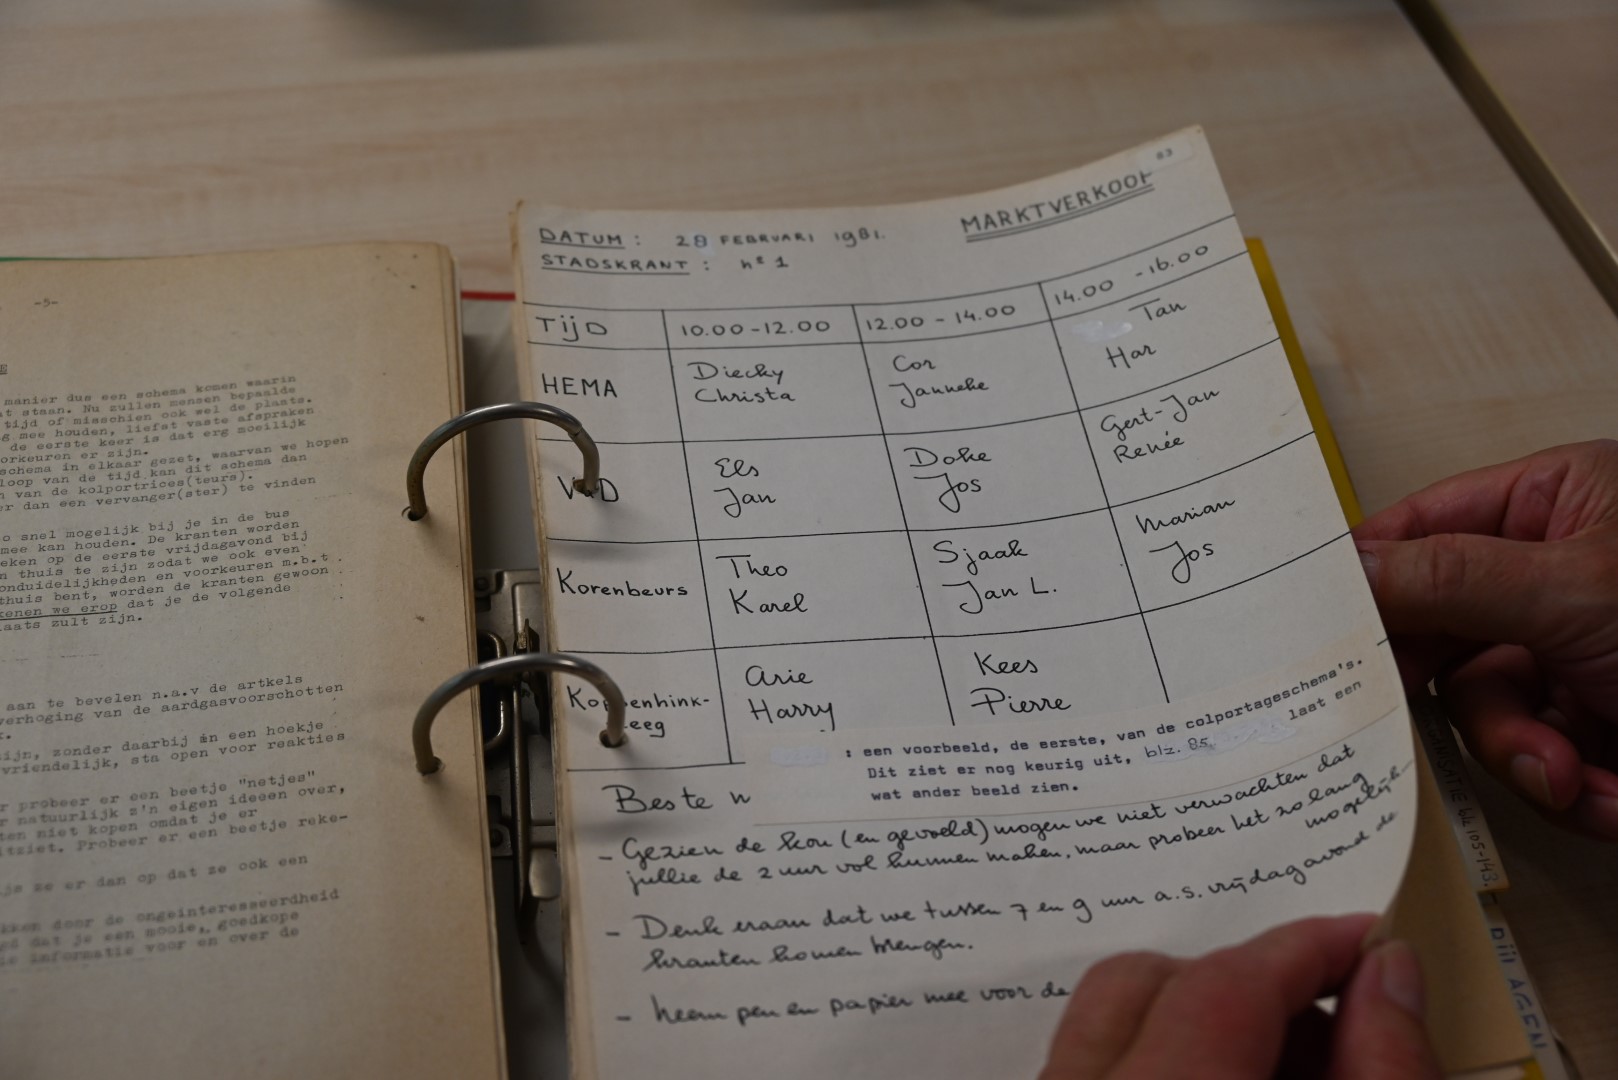 -5-
manier dus een schema komen waarin
staan. Nu zullen mensen bepaalde
tijd of misschien ook wel de plaats.
mee houden, liefst vaste afspraken
de eerste keer is dat erg moeilijk
er zijn.
schema in elkaar gezet, waarvan we hopen
loop van de tijd kan dit schema dan
van de kolportrices(teurs).
dan een vervanger(ster) te vinden
snel mogelijk bij je in de bus
mee kan houden. De kranten worden
op de eerste vrijdagavond bij
thuis te zijn zodat we ook even
onduidelijkheden en voorkeuren m.b.t.
thuis bent, worden de kranten gewoon
we erop dat je de volgende
zult zijn.
aan te bevelen n.a.v de artkels
verhoging van de aardgasvoorschotten
zijn, zonder daarbij in een hoekje
vriendelijk, sta open voor reakties
probeer er een beetje "netjes"
natuurlijk z'n eigen ideeen over,
niet kopen omdat je er
uitziet. Probeer er een beetje reke-
ze er dan op dat ze ook een
door de ongeinteresseerdheid
dat je een mooie, goedkope
informatie voor en over de
83
MARKTVERKOOP
DATUM : 28 FEBRUARI 1981.
STADSKRANT : nº 1
TIJD 10.00-12.00 12.00 - 14.00 14.00 -16.00
HEMA Diecky Cor Tan
Christa Janneke Har
V&D Els Doke Gert-Jan
Jan Jos Renée
Korenbeurs Theo Sjaak Marian
Karel Jan L. Jos
Koppenhink- Arie Kees
steeg Harry Pierre
: een voorbeeld, de eerste, van de colportageschema's.
Dit ziet er nog keurig uit, blz. 85, laat een
wat ander beeld zien.
Beste
- Gezien de kou (en gevoeld) mogen we niet verwachten dat
jullie de 2 uur vol kunnen maken, maar probeer het zo lang
mogelijk
- Denk eraan dat we tussen 7 en 9 uur a.s. vrijdagavond de
kranten komen brengen.
- Neem pen en papier mee voor de
blz 105-143.
BIJLAGEN